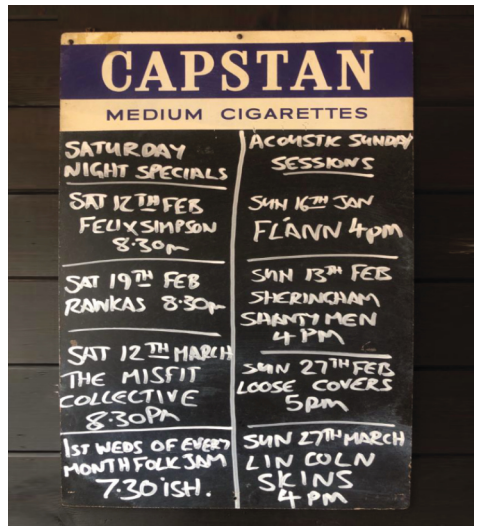 CAPSTAN
MEDIUM CIGARETTES
SATURDAY
NIGHT SPECIALS
SAT 12TH FEB
FELIX SIMPSON
8.30pm
SAT 19TH FEB
RAWKAS 8.30pm
SAT 12TH MARCH
THE MISFIT
COLLECTIVE
8.30PM
1ST WEDS OF EVERY
MONTH FOLK JAM
7.30 ISH.
ACOUSTIC SUNDAY
SESSIONS
SUN 16TH JAN
FLÁNN 4pm
SUN 13TH FEB
SHERINGHAM
SHANTY MEN
4 PM
SUN 27TH FEB
LOOSE COVERS
5pm
SUN 27TH MARCH
LINCOLN
SKINS
4 PM